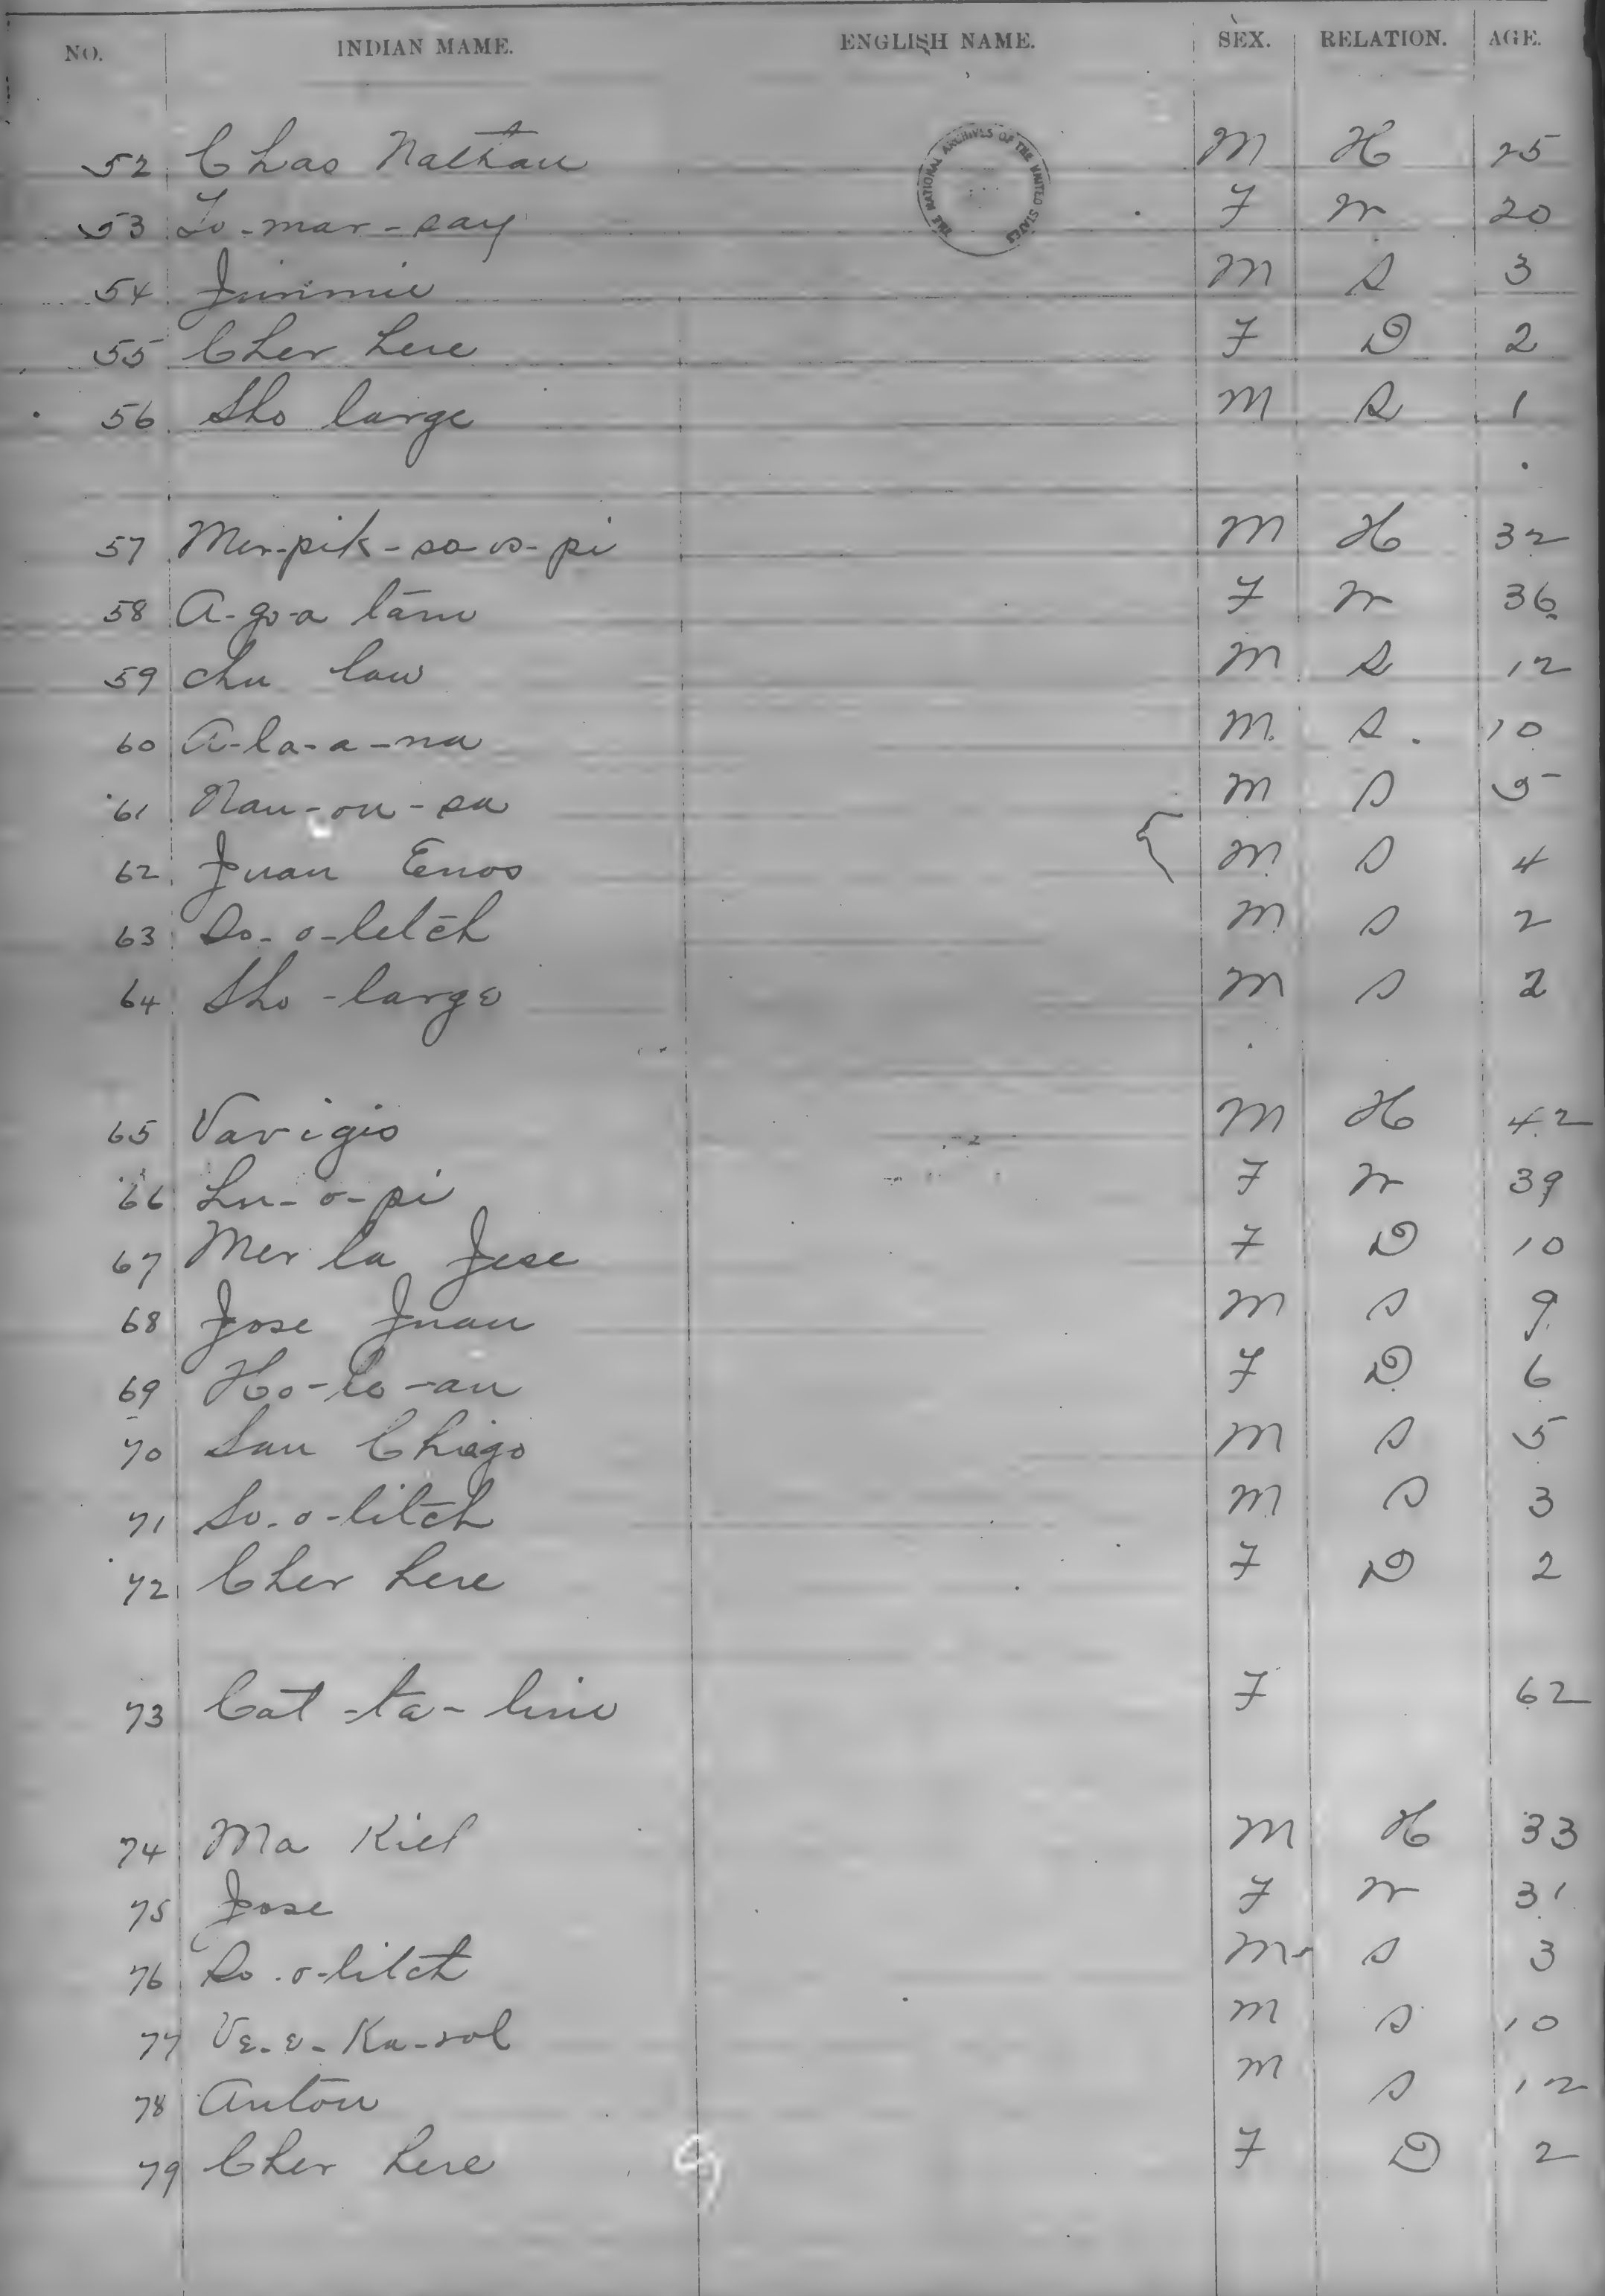 NO. INDIAN MAME. ENGLISH NAME. SEX. RELATION. AGE.
THE NATIONAL ARCHIVES OF THE UNITED STATES
52 Chas Nathan M H 25
53 To-mar-say F W 20
54 Jimmie M S 3
55 Cher here F D 2
56 Sho large M S 1
57 Mer-pik-so-os-pi M H 32
58 A-go-a tam F W 36
59 Chu law M S 12
60 A-la-a-na M S. 10
61 Nau-ou-sa M S 5
62 Juan Enos M S 4
63 So-o-letch M S 2
64 Sho-large M S 2
65 Varigio M H 42
66 Lu-o-pi F W 39
67 Mer la Jese F D 10
68 Jose Juan M S 9
69 Ho-lo-au F D 6
70 San Chiago M S 5
71 So-o-litch M S 3
72 Cher here F D 2
73 Cat-ta-line F 62
74 Ma Kiel M H 33
75 Jose F W 31
76 So-o-litch M S 3
77 Ve-e-Ka-sol M S 10
78 Anton M S 12
79 Cher here F D 2